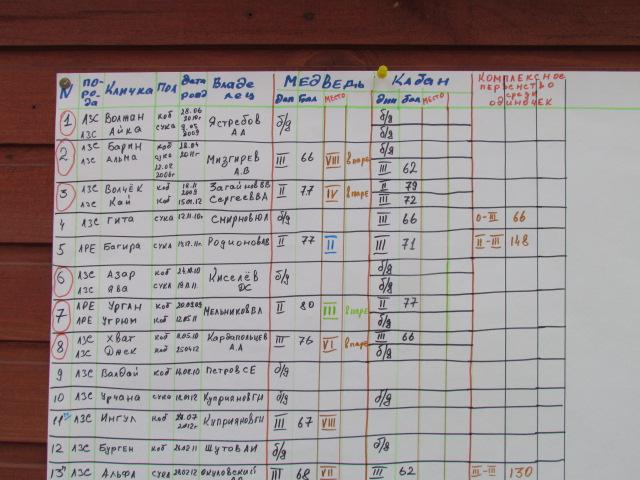 N ПО-РО-ДА Кличка Пол Дата рожд Владелец МЕДВЕДЬ дип бал МЕСТО КАБАН дип бал МЕСТО КОМПЛЕКСНОЕ первенство среди одиночек
1 ЛЗС Волтан коб Ястребов б/д б/д
ЛЗС Айка сука АА б/д
2 ЛЗС Барин коб 28.04 Мизгирев III 66 VIII в паре б/д
ЛЗС Альма сука А.В III 62
3 ЛЗС Волчёк коб 18.11 Загайнов ВВ II 77 IV в паре II 79
ЛЗС Кай коб 15.01.12 Сергеев ВА III 72
4 ЛЗС Гита сука 12.11.10г Смирнов Ю.Л б/д III 66 0-III 66
5 ЛРЕ Багира сука Родионов АВ II 77 II III 71 II-III 148
6 ЛЗС Азор коб 24.10.10 Киселёв б/д б/д
ЛЗС Ява сука ДС б/д
7 ЛРЕ Урган коб 20.03.09 Мельников В.Л II 80 III в паре II 77
ЛРЕ Угрюм коб 12.05.11 б/д
8 ЛЗС Хват коб 11.05.10 Кардапольцев III 76 VI в паре III 66
ЛЗС Джек коб 25.04.12 А.А б/д
9 ЛЗС Валдай коб 14.08.10 Петров С.Е б/д
10 ЛЗС Урчана сука Куприянов ГН б/д б/д
11 ЛЗС Ингул коб 28.07 2012г Куприянов ГН III 67 VIII
12 ЛЗС Бурген коб 26.02.11 Шутов А.И б/д б/д
13 ЛЗС Альфа сука 28.02.12 Окуловский III 68 VII III 62 III-III 130